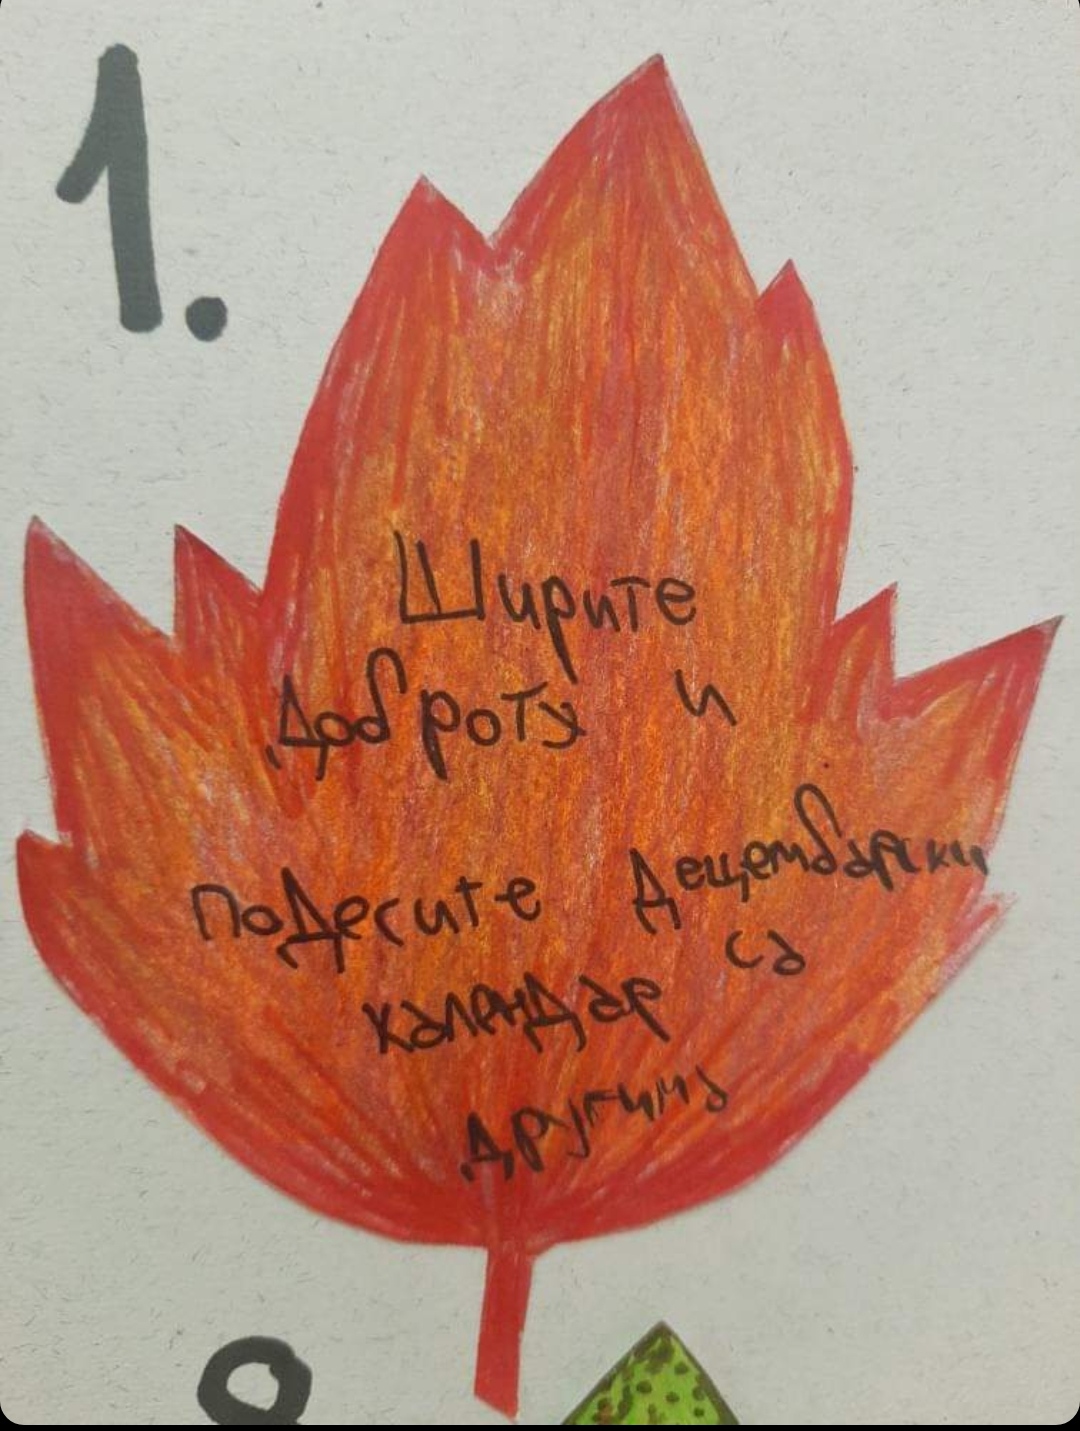 1.
Ширите
Доброту и
поДесите Децембарски
календар са
другима
8